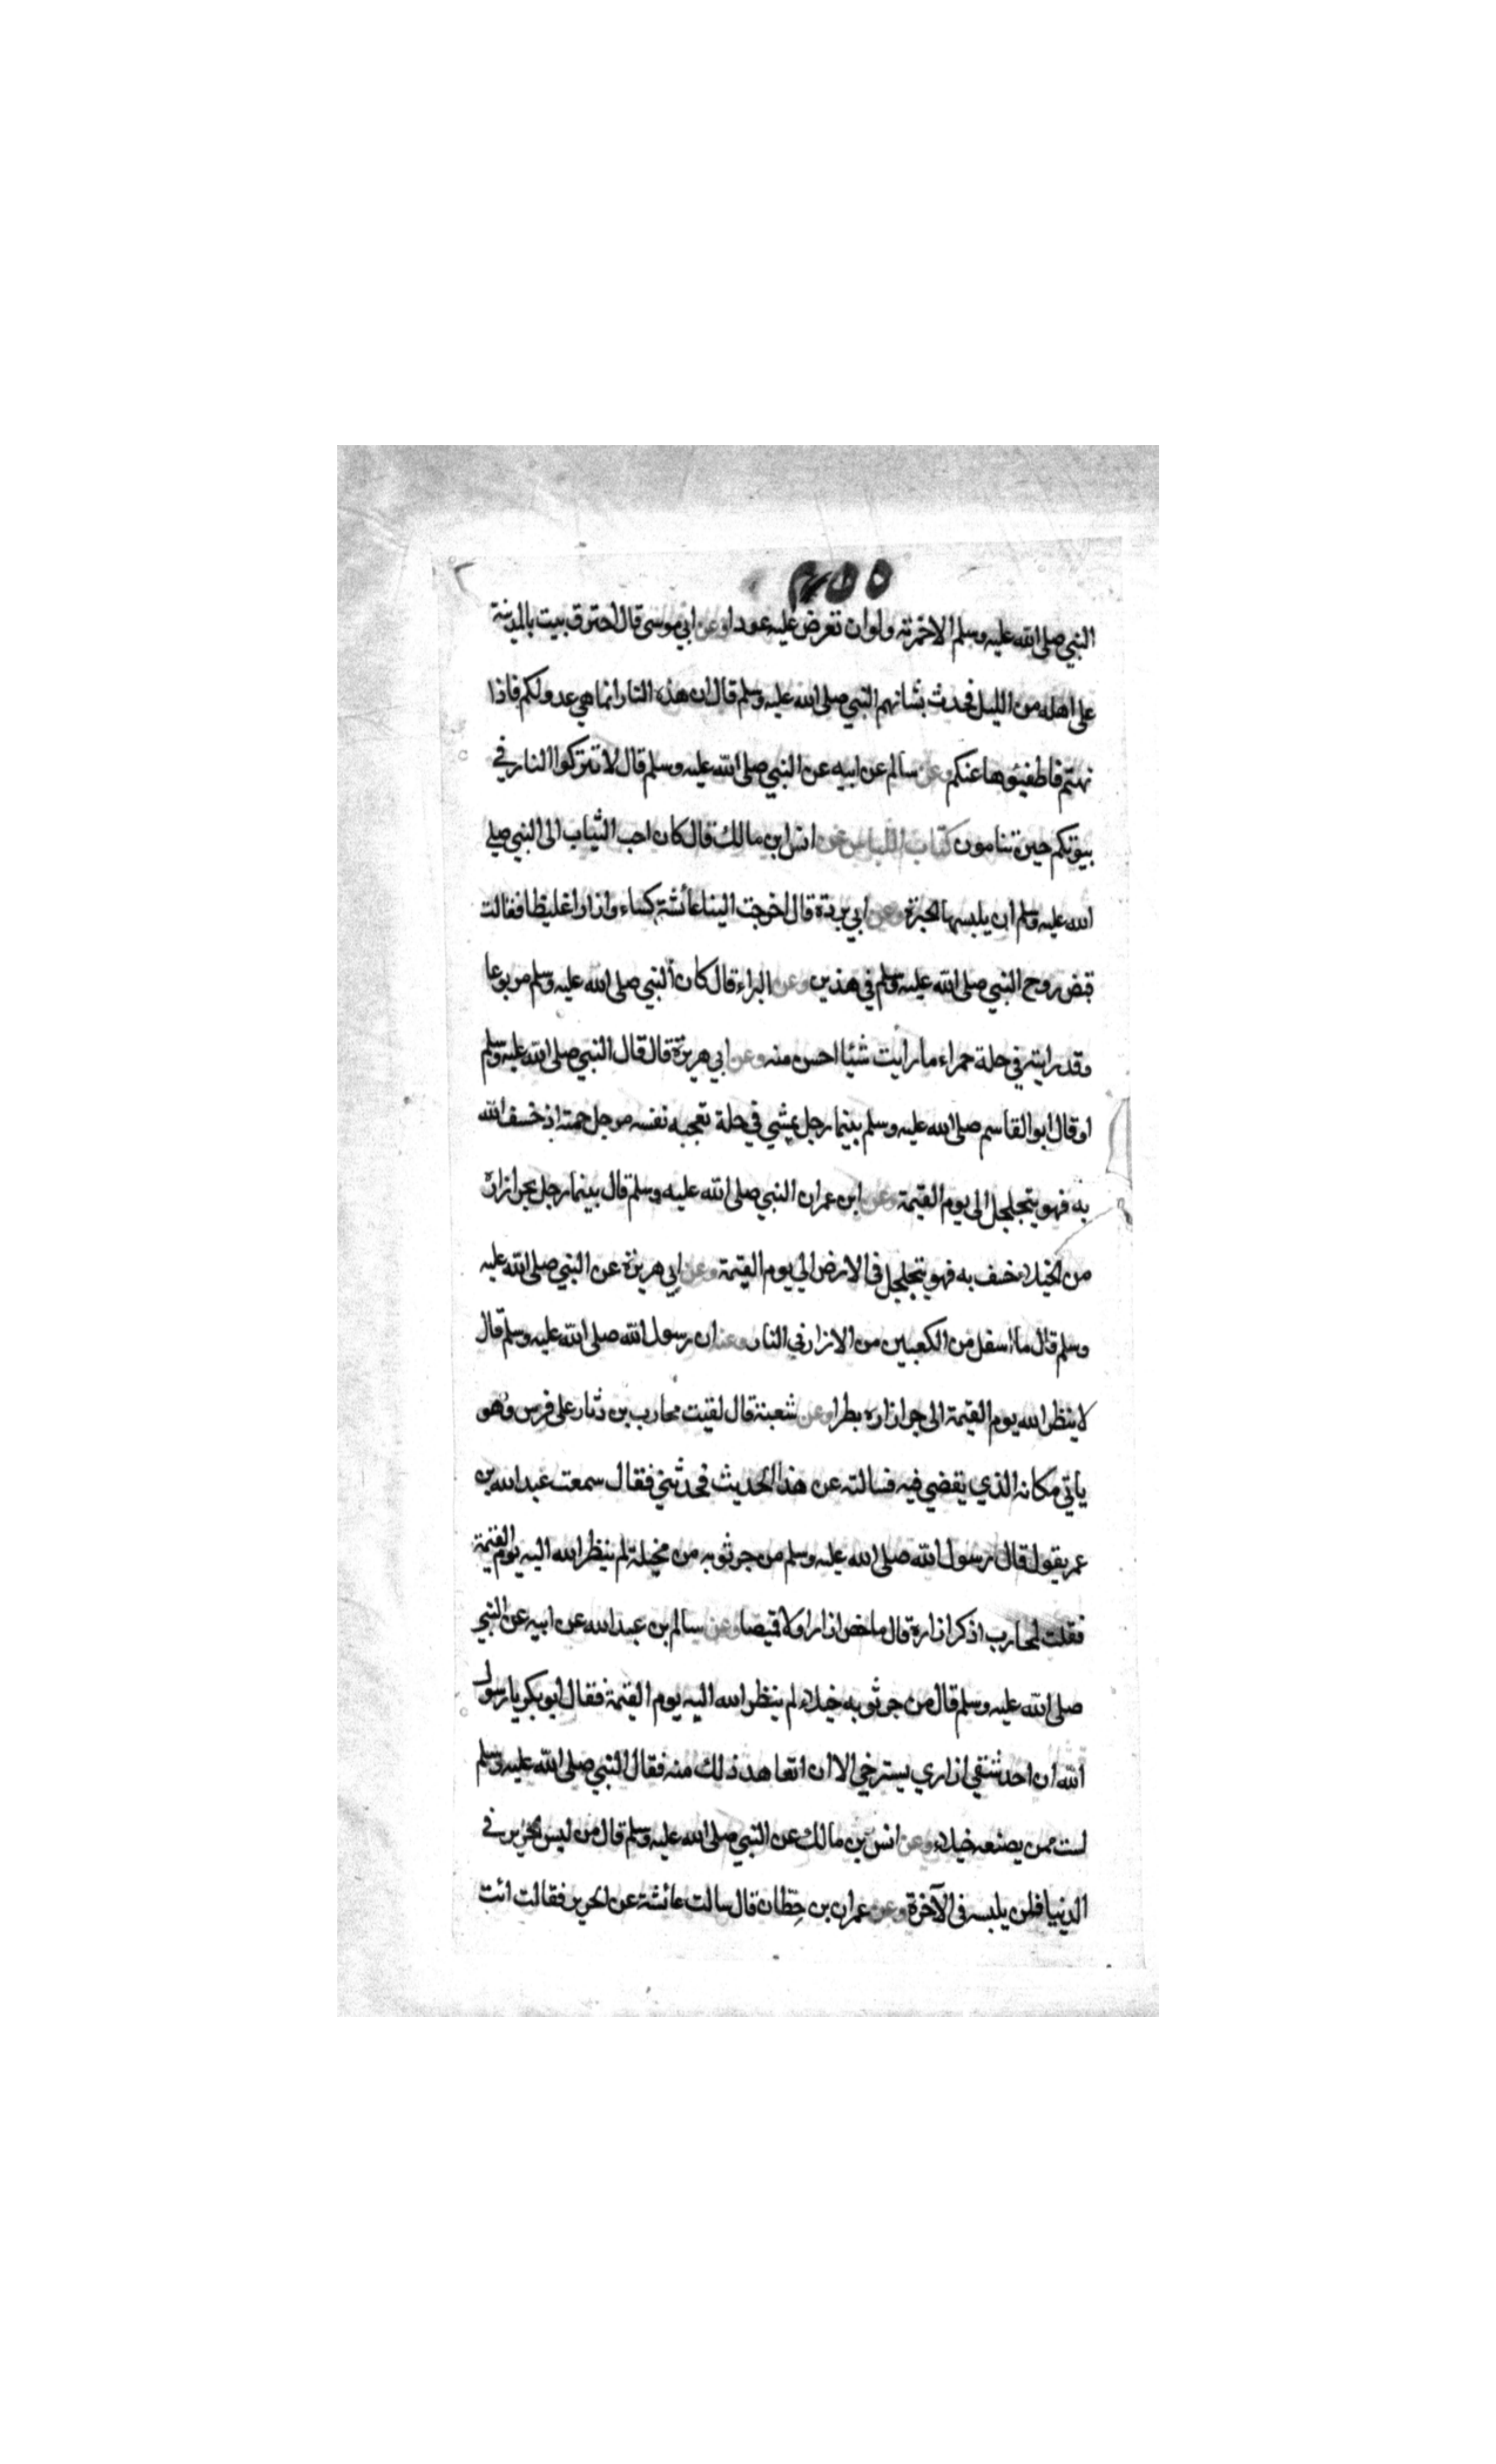 النبي صلى الله عليه وسلم الا خمرته ولو ان تعرض عليه عودا وعن ابي موسى قال احترق بيت بالمدينة
على اهله من الليل فحدث بشانهم النبي صلى الله عليه وسلم قال ان هذه النار انما هي عدو لكم فاذا
نمتم فاطفئوها عنكم وعن سالم عن ابيه عن النبي صلى الله عليه وسلم قال لا تتركوا النار في
بيوتكم حين تنامون كتاب اللباس عن انس ابن مالك قال كان احب الثياب الى النبي صلى
الله عليه وسلم ان يلبسها الحبرة وعن ابي بردة قال اخرجت الينا عائشة كساء وازارا غليظا فقالت
قبض روح النبي صلى الله عليه وسلم في هذين وعن البراء قال كان النبي صلى الله عليه وسلم مربوعا
وقد رايته في حلة حمراء ما رايت شيئا احسن منه وعن ابي هريرة قال قال النبي صلى الله عليه وسلم
او قال ابو القاسم صلى الله عليه وسلم بينما رجل يمشي في حلة تعجبه نفسه مرجل جمته اذ خسف الله
به فهو يتجلجل الى يوم القيمة وعن ابن عمر ان النبي صلى الله عليه وسلم قال بينما رجل يجر ازاره
من الخيلاء خسف به فهو يتجلجل في الارض الى يوم القيمة وعن ابي هريرة عن النبي صلى الله عليه
وسلم قال ما اسفل من الكعبين من الازار في النار وعنه ان رسول الله صلى الله عليه وسلم قال
لا ينظر الله يوم القيمة الى جر ازاره بطرا وعن شعبة قال لقيت محارب بن دثار على فرس وهو
ياتي مكانه الذي يقضي فيه فسالته عن هذا الحديث فحدثني فقال سمعت عبد الله بن
عمر يقول قال رسول الله صلى الله عليه وسلم من جر ثوبه من مخيلة لم ينظر الله اليه يوم القيمة
فقلت لمحارب اذكر ازاره قال ما خص ازارا ولا قميصا وعن سالم بن عبد الله عن ابيه عن النبي
صلى الله عليه وسلم قال من جر ثوبه خيلاء لم ينظر الله اليه يوم القيمة فقال ابو بكر يا رسول
الله ان احد شقي ازاري يسترخي الا ان اتعاهد ذلك منه فقال النبي صلى الله عليه وسلم
لست ممن يصنعه خيلاء وعن انس بن مالك عن النبي صلى الله عليه وسلم قال من لبس الحرير في
الدنيا فلن يلبسه في الآخرة وعن عمران بن حطان قال سالت عائشة عن الحرير فقالت ائت